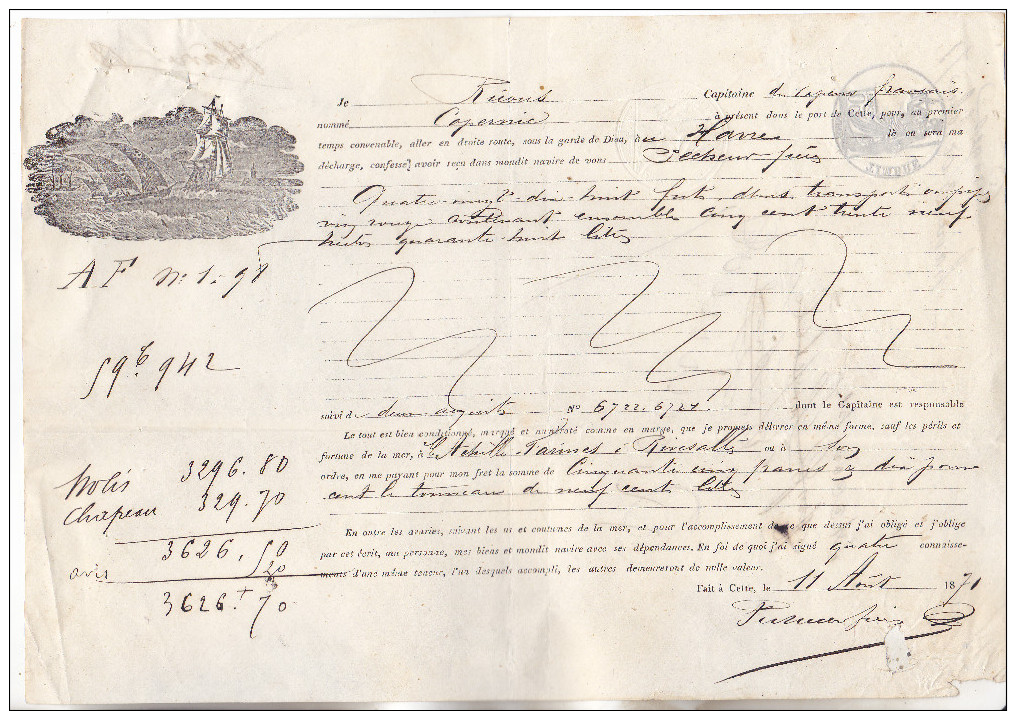 Je Ricous Capitaine du vapeur français
nommé Copernic à présent dans le port de Cette, pour, au premier
temps convenable, aller en droite route, sous la garde de Dieu, à au Havre là où sera ma
décharge, confesse avoir reçu dans mondit navire de vous frères
Quatre vingt dix huit futs demi transports ou pipes
vin rouge contenant ensemble cinq cent trente neuf
hectos quarante huit litres
AF No 1. 98
59 942
suivi de deux acquits No 6722.6721 dont le Capitaine est responsable
Le tout est bien conditionné, marqué et numéroté comme en marge, que je promets délivrer en même forme, sauf les périls et
fortune de la mer, à Achille Farines à Rivesaltes ou à son
ordre, en me payant pour mon fret la somme de Cinquante cinq francs & dix pour
cent le tonneau de neuf cents litres
Nolis 3296.80
Chapeau 329.70
3626.50
avis 20
3626.70
En outre les avaries, suivant les us et coutumes de la mer, et pour l'accomplissement de ce que dessus j'ai obligé et j'oblige
par cet écrit, ma personne, mes biens et mondit navire avec ses dépendances. En foi de quoi j'ai signé quatre connaisse-
ments d'une même teneur, l'un desquels accompli, les autres demeureront de nulle valeur.
Fait à Cette, le 11 Août 1871
TIMBRE